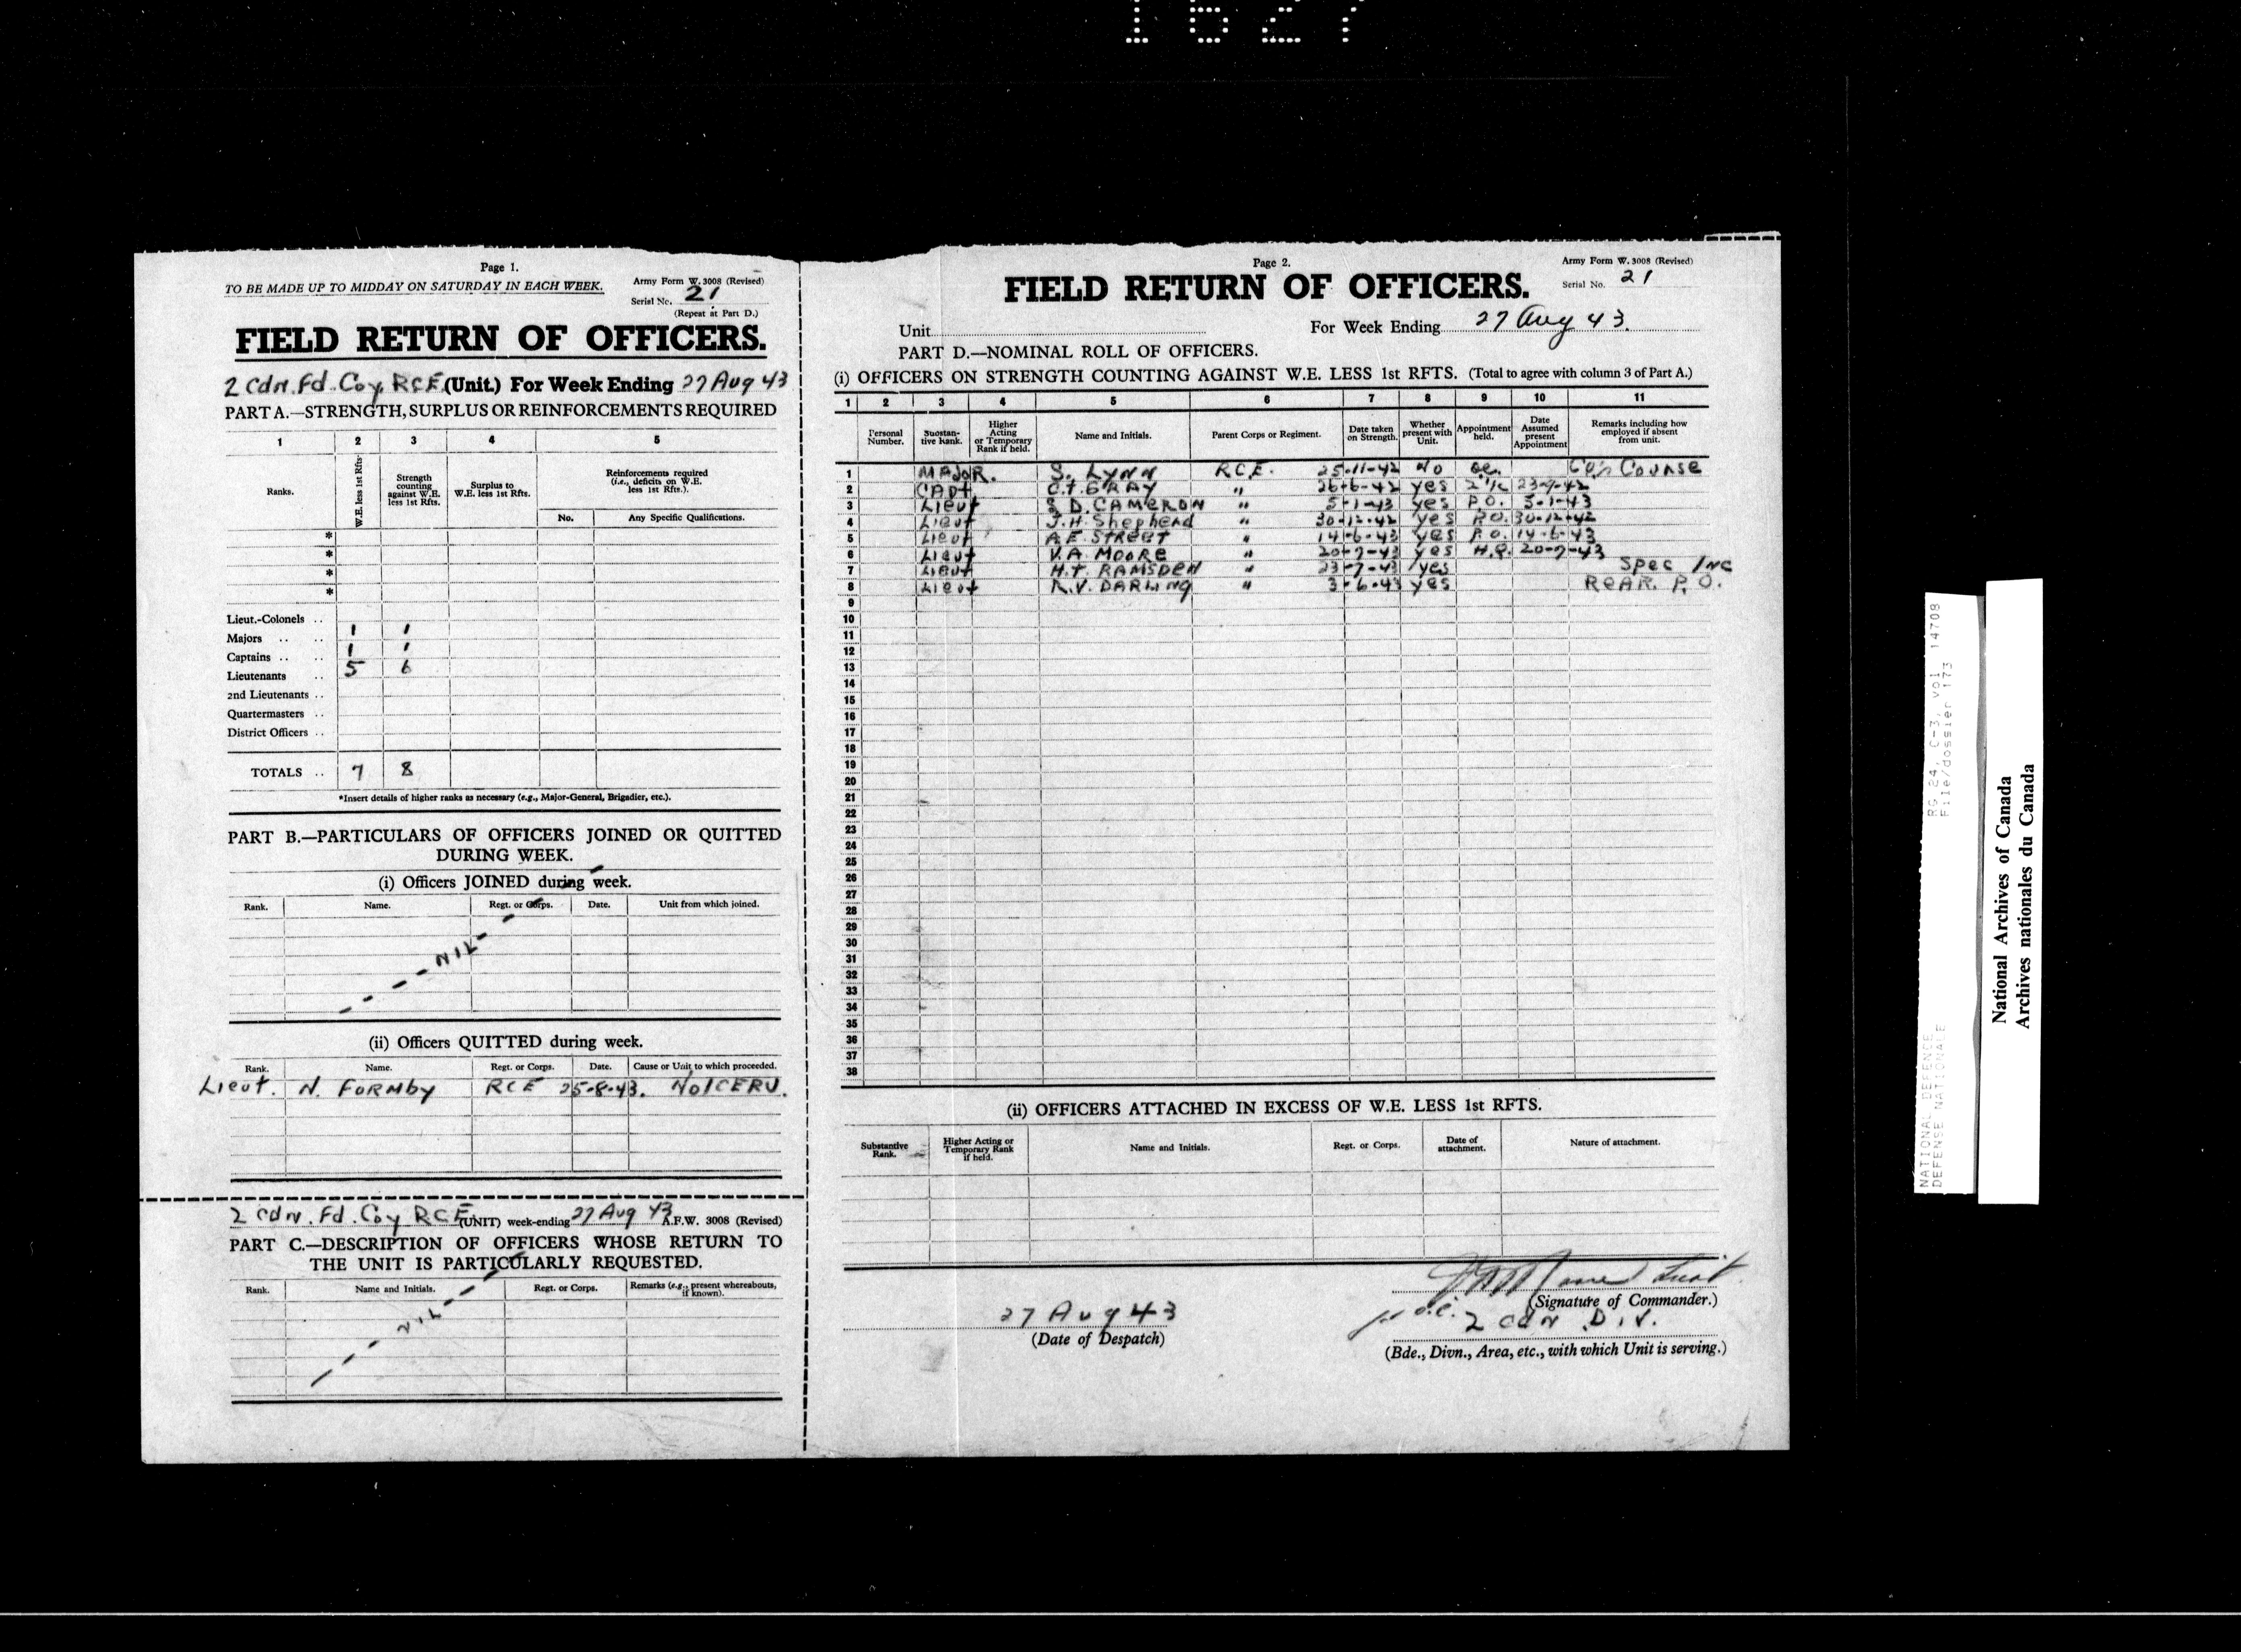 1627
Page 1.
TO BE MADE UP TO MIDDAY ON SATURDAY IN EACH WEEK.
Army Form W. 3008 (Revised)
Serial No. 21
(Repeat at Part D.)
FIELD RETURN OF OFFICERS.
2 Cdn. Fd. Coy. RCE (Unit.) For Week Ending 27 Aug 43
PART A.—STRENGTH, SURPLUS OR REINFORCEMENTS REQUIRED
1 2 3 4 5
Ranks. W.E. less 1st Rfts. Strength counting against W.E. less 1st Rfts. Surplus to W.E. less 1st Rfts. Reinforcements required (i.e., deficits on W.E. less 1st Rfts.).
No. Any Specific Qualifications.
*
*
*
*
Lieut.-Colonels ..
Majors .. .. 1 1
Captains .. .. 1 1
Lieutenants .. 5 6
2nd Lieutenants ..
Quartermasters ..
District Officers ..
TOTALS .. 7 8
*Insert details of higher ranks as necessary (e.g., Major-General, Brigadier, etc.).
PART B.—PARTICULARS OF OFFICERS JOINED OR QUITTED
DURING WEEK.
(i) Officers JOINED during week.
Rank. Name. Regt. or Corps. Date. Unit from which joined.
NIL
(ii) Officers QUITTED during week.
Rank. Name. Regt. or Corps. Date. Cause or Unit to which proceeded.
Lieut. N. FORMby RCE 25-8-43. No1CERU.
2 Cdn. Fd. Coy RCE (UNIT) week-ending 27 Aug 43 A.F.W. 3008 (Revised)
PART C.—DESCRIPTION OF OFFICERS WHOSE RETURN TO
THE UNIT IS PARTICULARLY REQUESTED.
Rank. Name and Initials. Regt. or Corps. Remarks (e.g., present whereabouts, if known).
NIL
Page 2.
Army Form W. 3008 (Revised)
Serial No. 21
FIELD RETURN OF OFFICERS.
Unit For Week Ending 27 Aug 43.
PART D.—NOMINAL ROLL OF OFFICERS.
(i) OFFICERS ON STRENGTH COUNTING AGAINST W.E. LESS 1st RFTS. (Total to agree with column 3 of Part A.)
1 2 3 4 5 6 7 8 9 10 11
Personal Number. Substantive Rank. Higher Acting or Temporary Rank if held. Name and Initials. Parent Corps or Regiment. Date taken on Strength. Whether present with Unit. Appointment held. Date Assumed present Appointment Remarks including how employed if absent from unit.
1 MAJOR. S. Lynn RCE. 25-11-42 No oc. Course
2 CAPt C.T. GRAY " 26-6-42 yes 2 i/c 23-9-42
3 Lieut S. D. CAMERON " 5-1-43 yes P.O. 5-1-43
4 Lieut J.H. Shepherd " 30-12-42 yes P.O. 30-12-42
5 Lieut A.E. STREET " 14-6-43 yes P.O. 14-6-43
6 Lieut V.A. MOORE " 20-7-43 yes H.Q. 20-7-43
7 Lieut H.T. RAMSDEN " 23-7-43 yes Spec Inc
8 Lieut R.V. DARLINg " 3-6-43 yes REAR. P.O.
9
10
11
12
13
14
15
16
17
18
19
20
21
22
23
24
25
26
27
28
29
30
31
32
33
34
35
36
37
38
(ii) OFFICERS ATTACHED IN EXCESS OF W.E. LESS 1st RFTS.
Substantive Rank. Higher Acting or Temporary Rank if held. Name and Initials. Regt. or Corps. Date of attachment. Nature of attachment.
Moore Lieut
(Signature of Commander.)
27 Aug 43
(Date of Despatch)
o.c. 2 Cdn Div.
(Bde., Divn., Area, etc., with which Unit is serving.)
NATIONAL DEFENCE RG 24, C-3, vol 14708
DEFENSE NATIONALE File/dossier 173
National Archives of Canada
Archives nationales du Canada